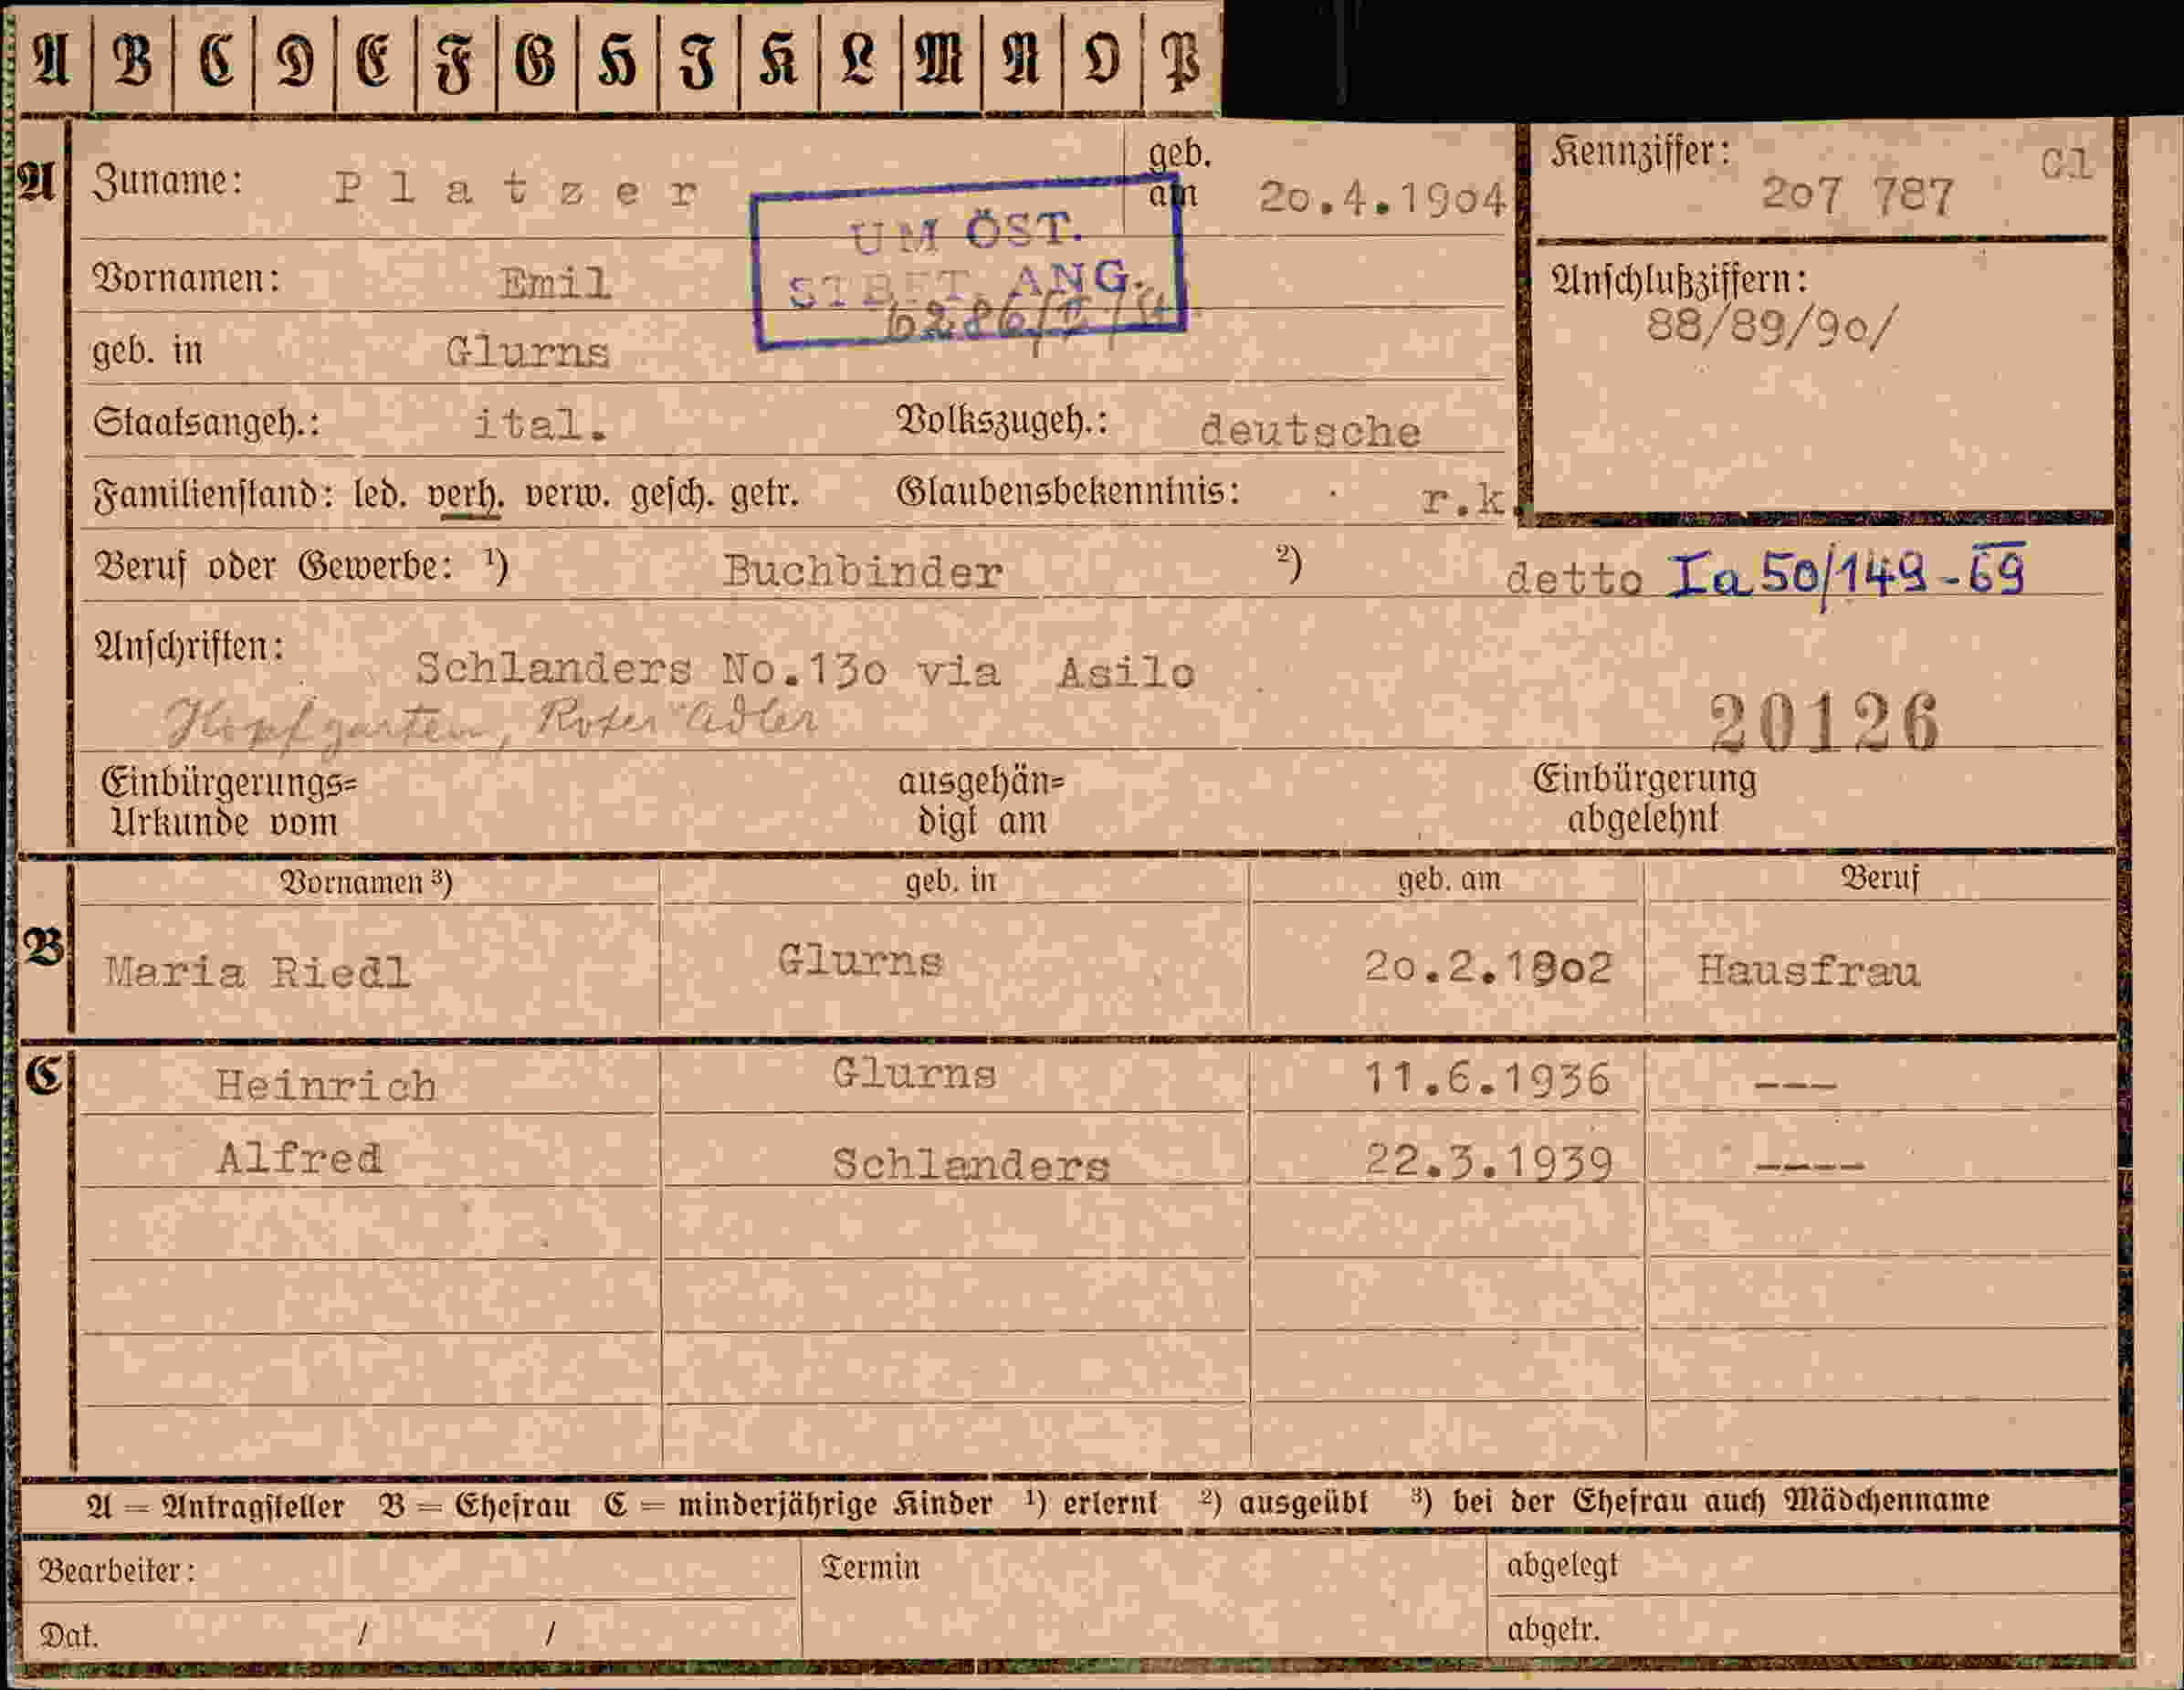 A B C D E F G H I K L M N O P
A Zuname: Platzer geb. am 20.4.1904 Kennziffer: 207 787 Gl
UM ÖST.
STBFT. ANG.
Vornamen: Emil Anschlußziffern:
88/89/90/
geb. in Glurns
Staatsangeh.: ital. Volkszugeh.: deutsche
Familienstand: led. verh. verw. gesch. getr. Glaubensbekenntnis: r.k.
Beruf oder Gewerbe: ¹) Buchbinder ²) detto Ia 50/149-69
Anschriften: Schlanders No.130 via Asilo
Hopfgarten, Roter Adler 20126
Einbürgerungs= ausgehän= Einbürgerung
Urkunde vom digt am abgelehnt
Vornamen ³) geb. in geb. am Beruf
B Maria Riedl Glurns 20.2.1902 Hausfrau
C Heinrich Glurns 11.6.1936 ---
Alfred Schlanders 22.3.1939 ----
A = Antragsteller B = Ehefrau C = minderjährige Kinder ¹) erlernt ²) ausgeübt ³) bei der Ehefrau auch Mädchenname
Bearbeiter: Termin abgelegt
Dat. / / abgetr.